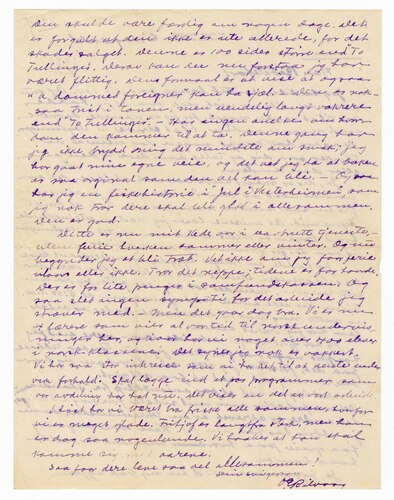 Den skulde være færdig om nogen dage. Det
er forgalt at den ikke er ute allerede, for det
skader salget. Denne er 100 sider større end To
Tullinger. Derav kan du nu forstaa jeg har
været flittig. Dens formaal er at vise at ogsaa
"a damned foreigner" kan ha sjel. Den er nok-
saa trist i tonen, men uendelig langt vakrere
end "To Tullinger". Har ingen anelse om hvor-
dan den kommer til at ta. Denne gang har
jeg ikke brydd mig det mindste om smak; jeg
har gaat mine egne veie, og det vet jeg da at boken
er saa original som den vel kan bli. Og saa
har jeg en fiskehistorie i Jul i Vesterheimen, som
jeg nok tror dere skal bli glad i allesammen.
Den er god.
Dette er nu mit 4de aar i uavbrutt tjeneste,
uten ferie hverken sommer eller vinter. Og nu
begynder jeg at bli træt. Vet ikke om jeg faar ferie
iaar eller ikke. Tror det neppe; tidene er for haarde.
Der er for lite penger i samfundskassen. Og
saa slet ingen sympati for det arbeide jeg
stræver med. – Men det gaar dog bra. Vi er nu
lærere som vier al vor tid til norskundervis-
ninger her, og saa har vi noget over 100 elever
i norskklassene. Det synes jeg nok er vakkert.
Vi har saa stor interesse som vi har hat til at dette under
vore forhold. Skal lægge ind et par programmer som
vor avdeling har hat nu. Det viser en del av vort arbeid.
Ellers har vi været bra friske alle sammen, hvorfor
vi er meget glade. Tritjof er langt fra sterk, men han
er dog saa nogenlunde. Vi haaber at han skal
komme sig med aarene.
Saa faar dere leve saa vel allesammen!
Din svigersøn
O E Rölvaag